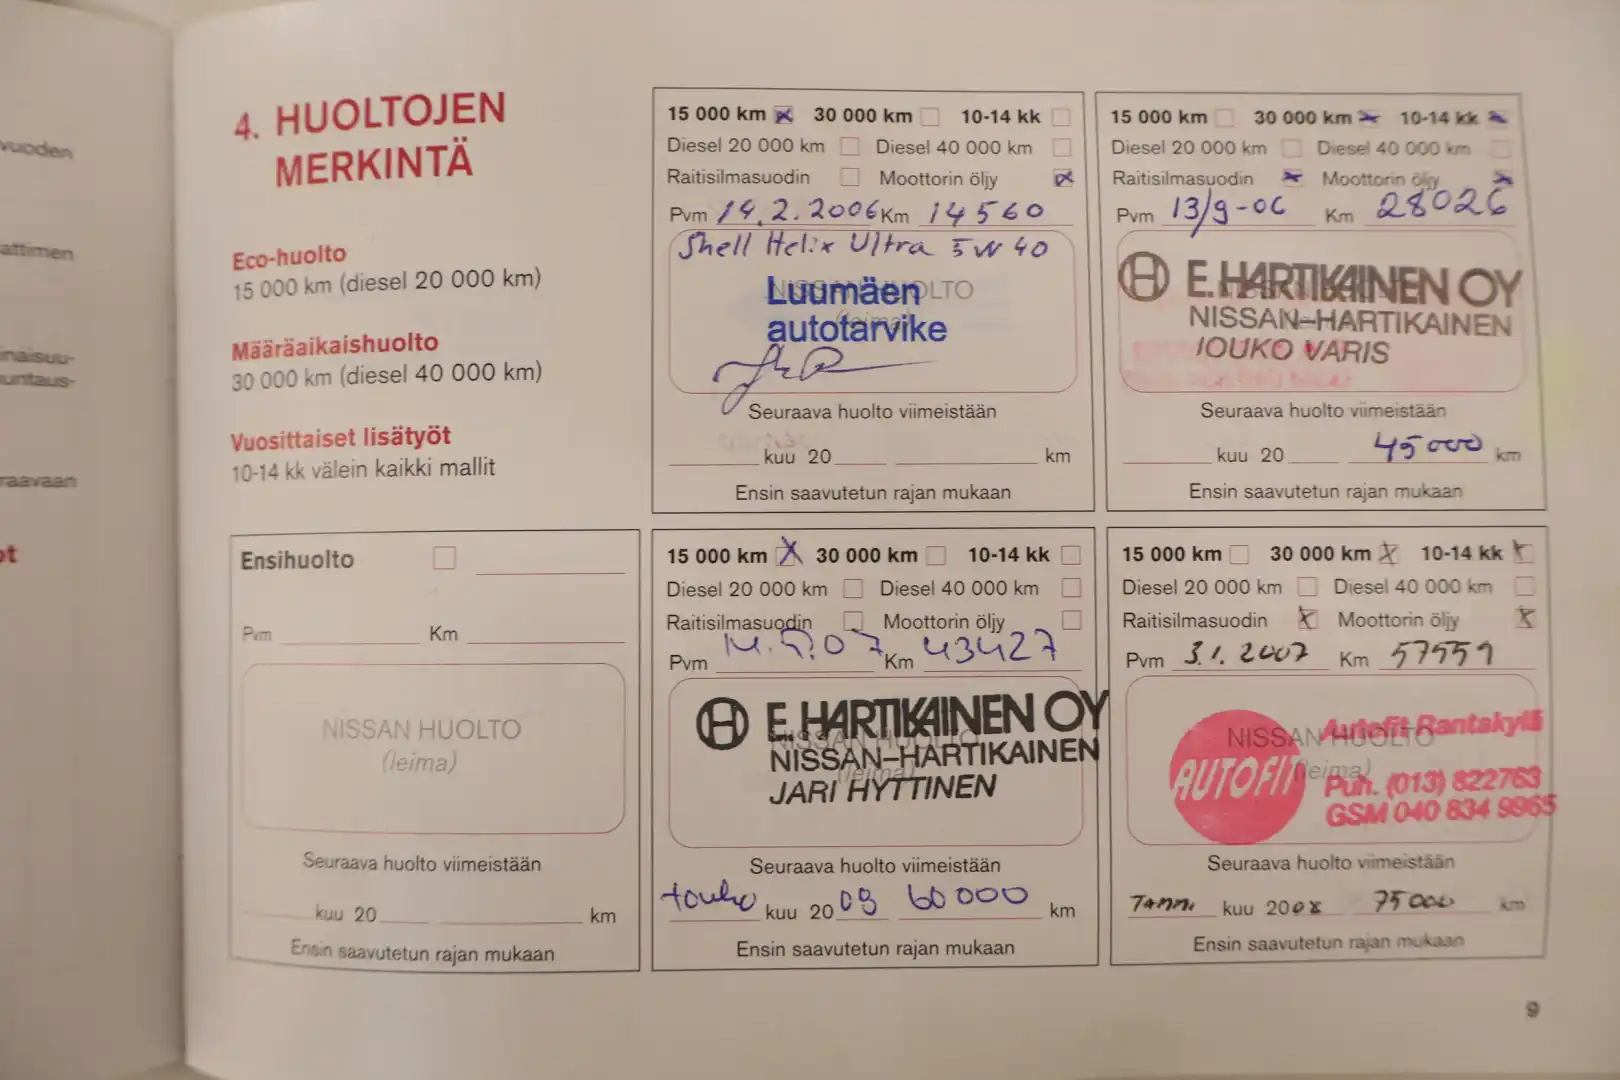 vuoden
attimen
inaisuu-
untaus-
raavaan
ot
4. HUOLTOJEN
MERKINTÄ
Eco-huolto
15 000 km (diesel 20 000 km)
Määräaikaishuolto
30 000 km (diesel 40 000 km)
Vuosittaiset lisätyöt
10-14 kk välein kaikki mallit
15 000 km 30 000 km 10-14 kk
Diesel 20 000 km Diesel 40 000 km
Raitisilmasuodin Moottorin öljy
Pvm 14.2.2006 Km 14560
Shell Helix Ultra 5W40
NISSAN HUOLTO
(leima)
Luumäen
autotarvike
Seuraava huolto viimeistään
kuu 20 km
Ensin saavutetun rajan mukaan
15 000 km 30 000 km 10-14 kk
Diesel 20 000 km Diesel 40 000 km
Raitisilmasuodin Moottorin öljy
Pvm 13/9-06 Km 28026
E. HARTIKAINEN OY
NISSAN-HARTIKAINEN
JOUKO VARIS
Seuraava huolto viimeistään
kuu 20 45000 km
Ensin saavutetun rajan mukaan
Ensihuolto
Pvm Km
NISSAN HUOLTO
(leima)
Seuraava huolto viimeistään
kuu 20 km
Ensin saavutetun rajan mukaan
15 000 km 30 000 km 10-14 kk
Diesel 20 000 km Diesel 40 000 km
Raitisilmasuodin Moottorin öljy
Pvm 14.5.07 Km 43427
NISSAN HUOLTO
(leima)
E. HARTIKAINEN OY
NISSAN-HARTIKAINEN
JARI HYTTINEN
Seuraava huolto viimeistään
touko kuu 2008 60000 km
Ensin saavutetun rajan mukaan
15 000 km 30 000 km 10-14 kk
Diesel 20 000 km Diesel 40 000 km
Raitisilmasuodin Moottorin öljy
Pvm 3.1.2007 Km 57559
NISSAN HUOLTO
(leima)
AUTOFIT
Autofit Rantakylä
Puh. (013) 822763
GSM 040 834 9965
Seuraava huolto viimeistään
Tammi kuu 2008 75000 km
Ensin saavutetun rajan mukaan
9